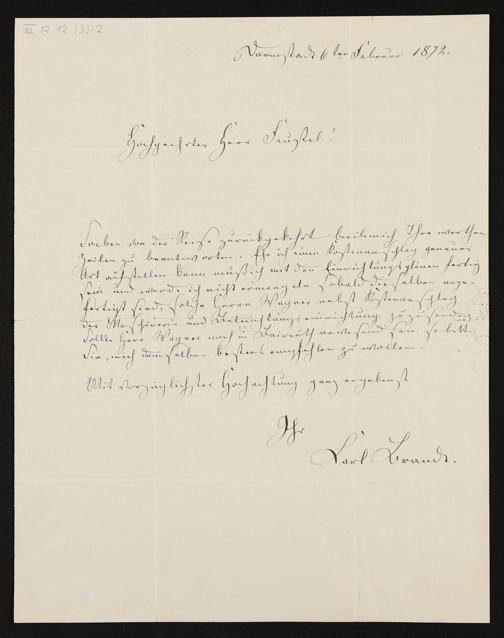 III 17 12 (3)-2
Darmstadt 6ten Februar 1872.
Hochgeehrter Herr Feustel!
Soeben von der Reise zurückgekehrt beeile mich Ihre werthen
Zeilen zu beantworten. Ehe ich einen Kostenanschlag genauer
Art aufstellen kann muß ich mit den Einrichtungsplänen fertig
sein und werde ich nicht ermangeln sobald dieselben ange-
fertigt sind, solche Herrn Wagner nebst Kostenanschlag
der Maschinerie und Beleuchtungseinrichtung zuzusenden.
Sollte Herr Wagner noch in Baireuth anwesend sein, so bitte
Sie, mich demselben bestens empfehlen zu wollen.
Mit vorzüglichster Hochachtung ganz ergebenst
Ihr
Carl Brandt.